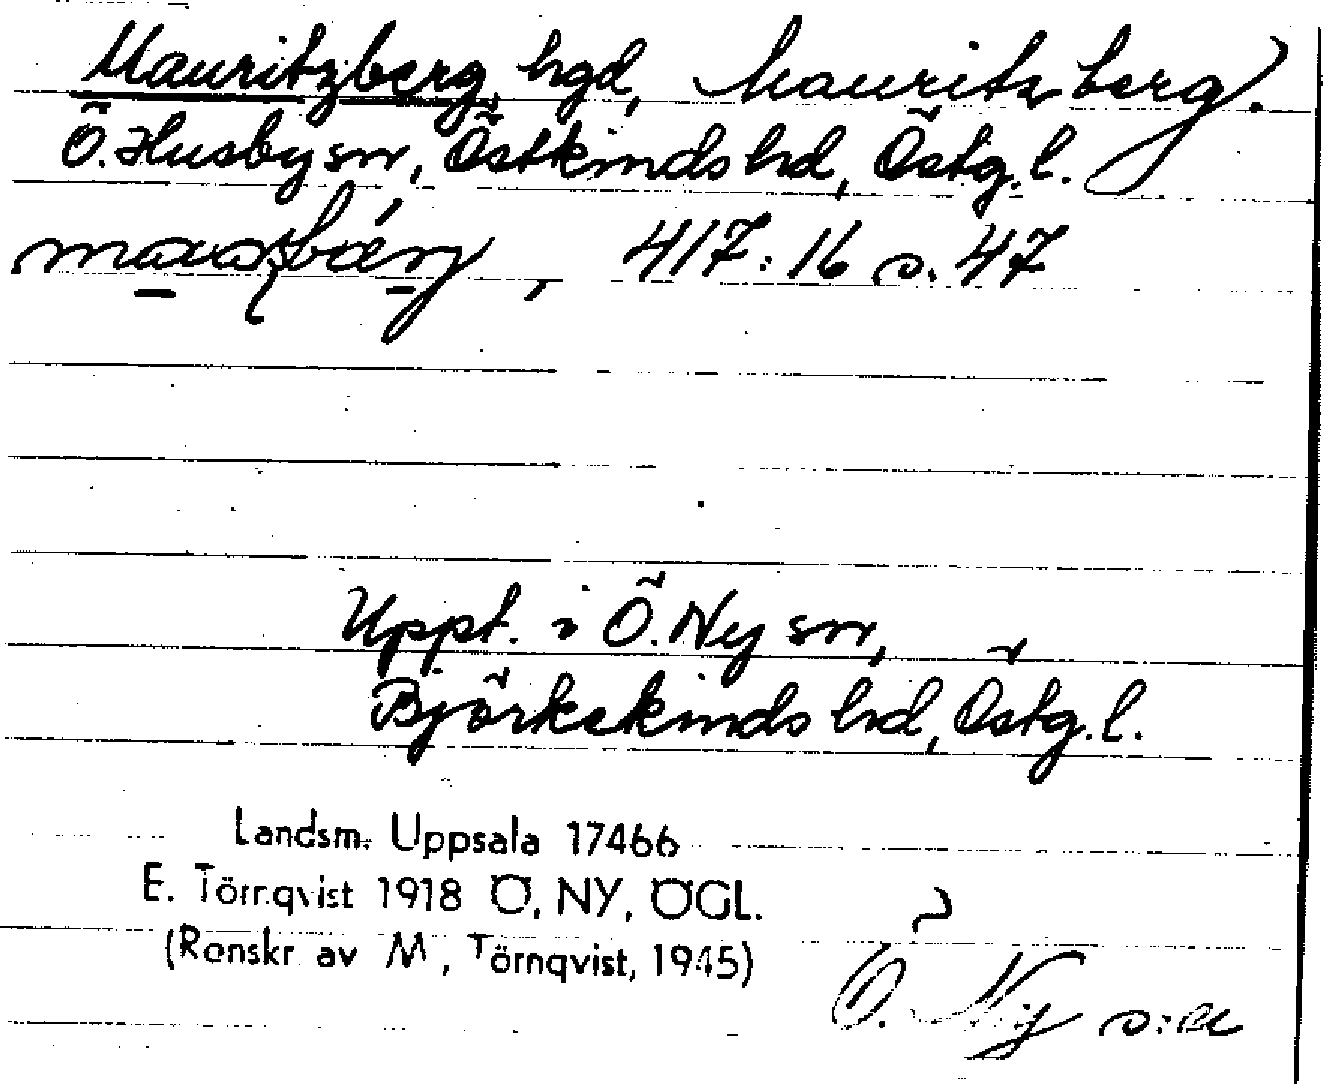 Mauritzberg, hgd, Mauritzberg.
Ö. Husby sn, Östkinds hd, Östg. l.
417:16 s. 47
Uppt. i Ö. Ny sn,
Björkekinds hd, Östg. l.
Landsm. Uppsala 17466
E. Törnqvist 1918 Ö, NY, ÖGL.
(Renskr av M, Törnqvist, 1945)
Ö. Ny s:n